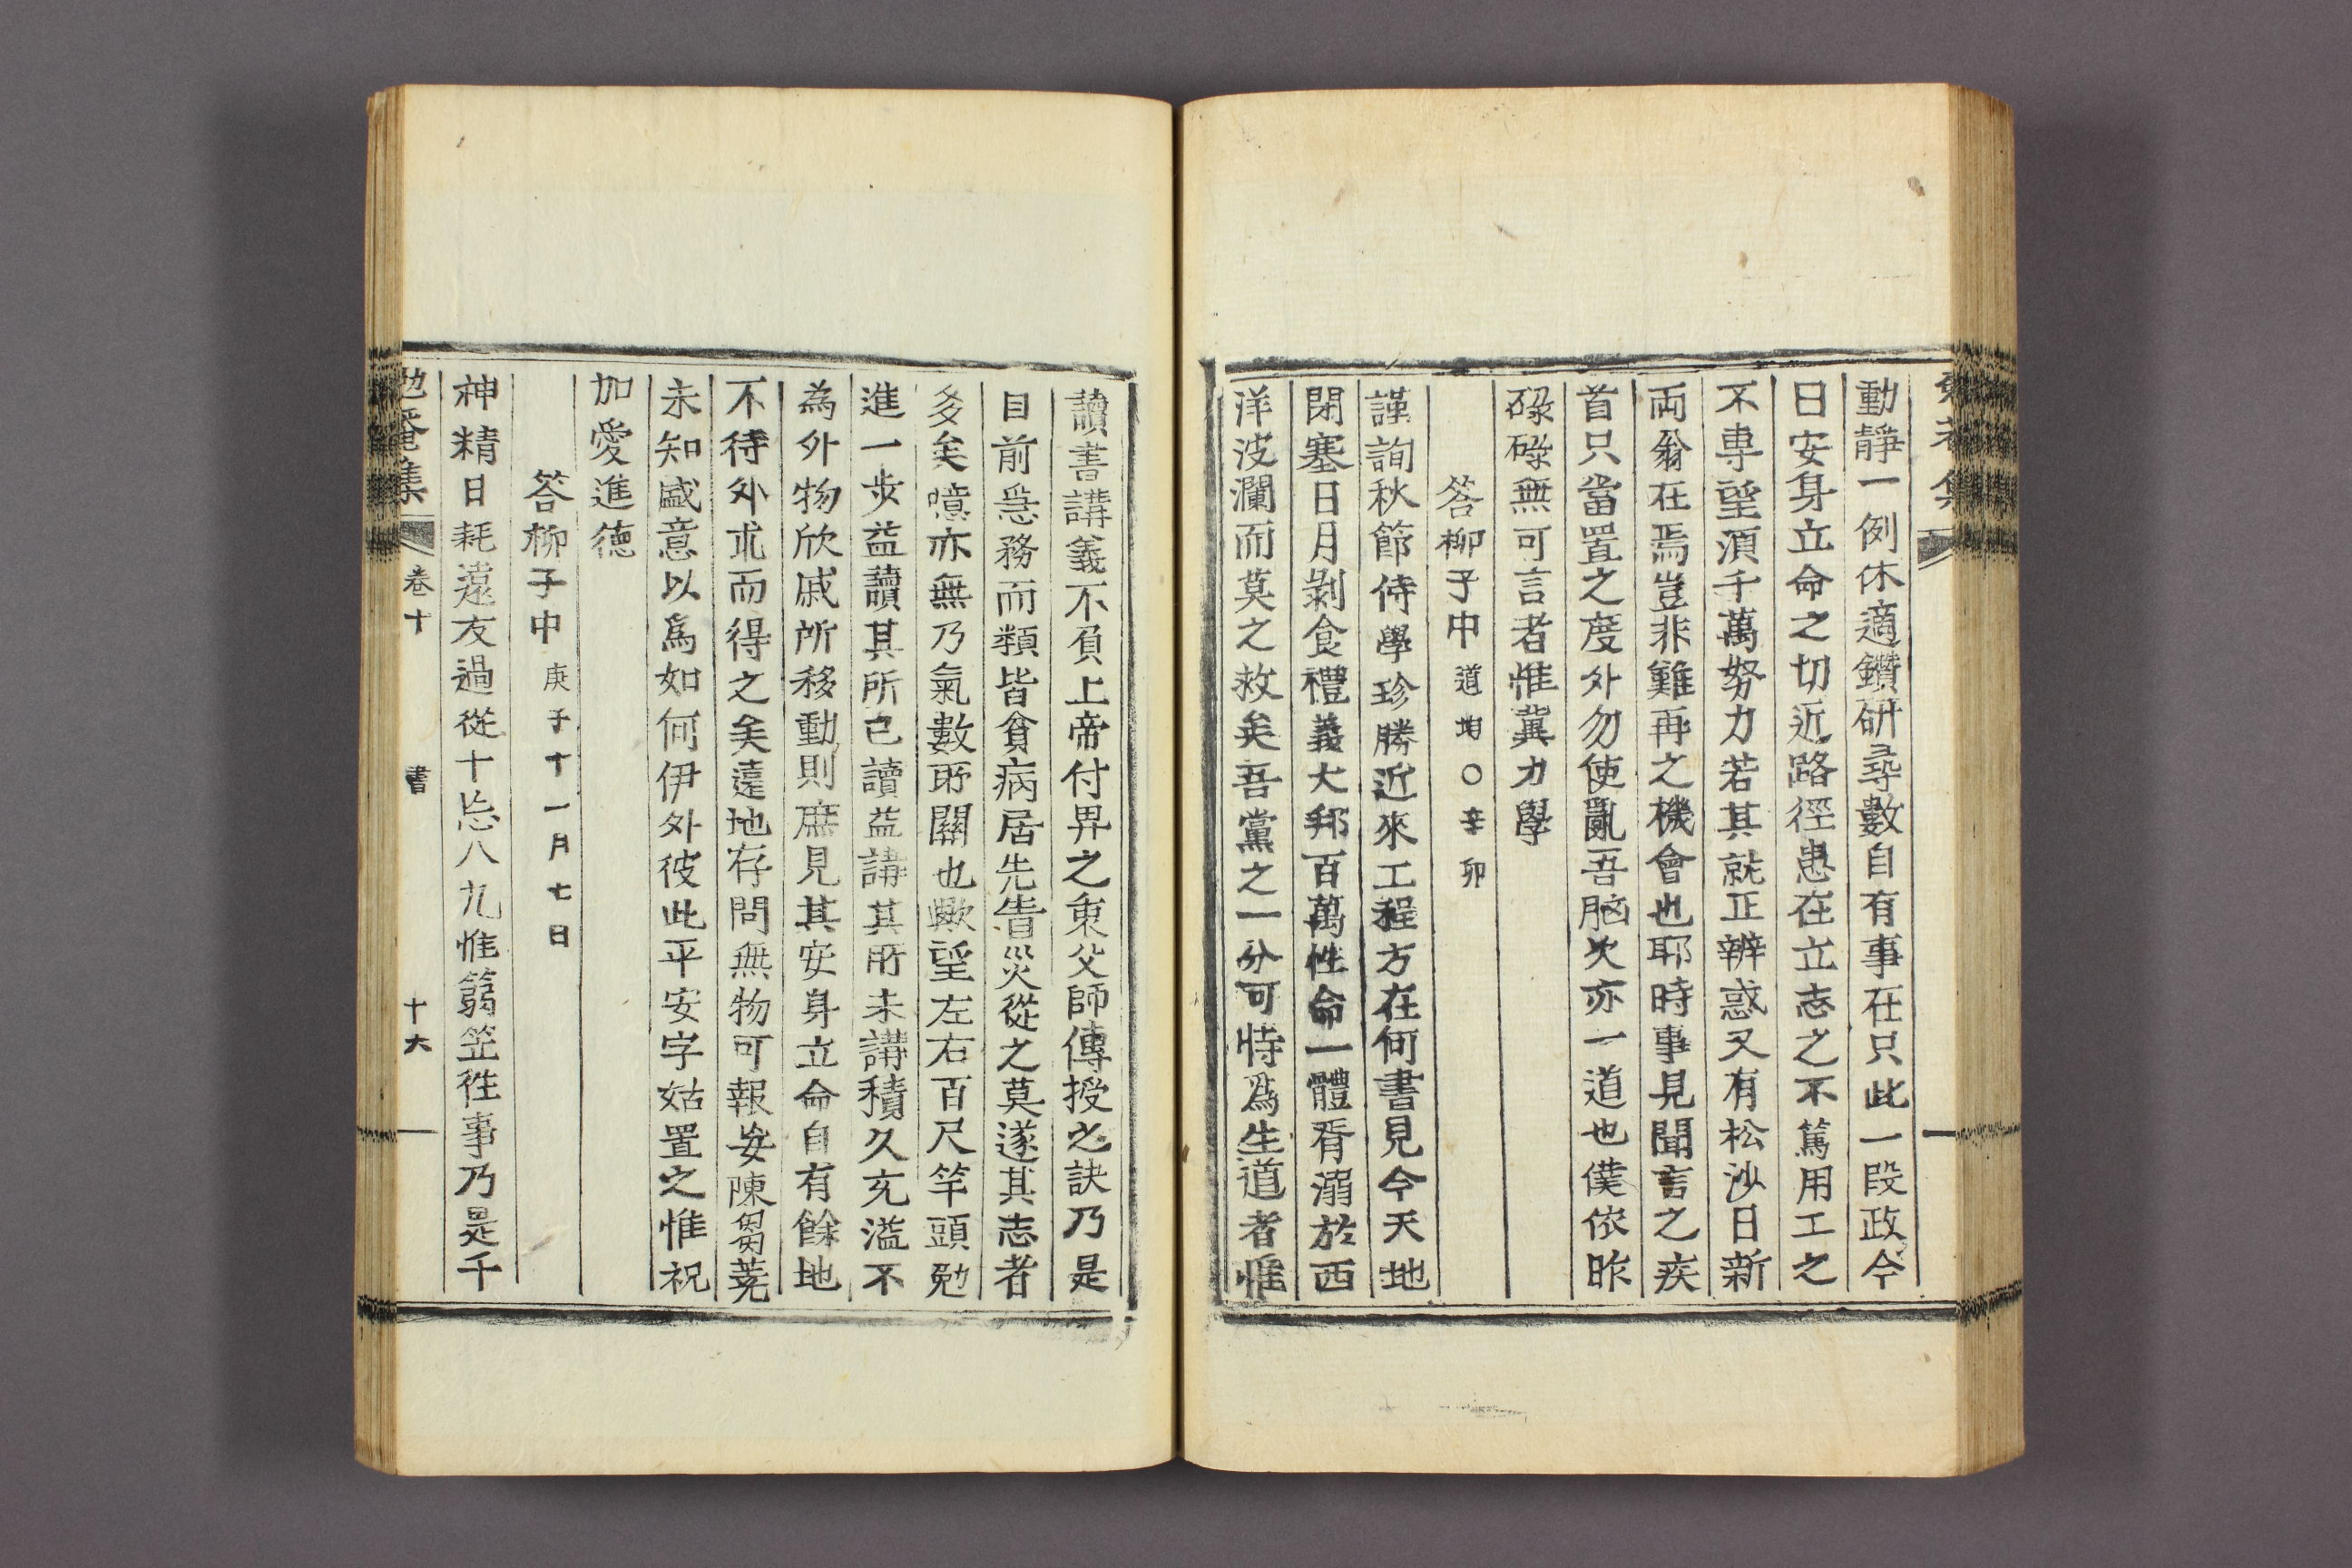 動靜一例休適鑽硏尋數自有事在只此一段政今
日安身立命之切近路徑患在立志之不篤用工之
不專望湏千萬努力若其就正辨惑又有松沙日新
両翁在焉豈非難再之機會也耶時事見聞言之疾
首只當置之度外勿使亂吾脑次亦一道也僕依昨
碌碌無可言者惟冀力學
答柳子中 道㘽○辛卯
謹詢秋節侍學珍勝近來工程方在何書見今天地
閉塞日月剝食禮義大邦百萬性命一體胥溺於西
洋波瀾而莫之救矣吾黨之一分可恃爲生道者惟
讀書講義不負上帝付畀之衷父師傳授之訣乃是
目前急務而類皆貧病居先眚災從之莫遂其志者
多矣噫亦無乃氣數所關也歟望左右百尺竿頭勉
進一步益讀其所已讀益講其所未講積久充溢不
為外物欣戚所移動則庶見其安身立命自有餘地
不待外求而得之矣遠地存問無物可報妄陳芻蕘
未知盛意以爲如何伊外彼此平安字姑置之惟祝
加愛進德
答柳子中 庚子十一月七日
神精日耗遠友過從十忘八九惟篛笠徃事乃是千
勉菴集 卷十 書 十六